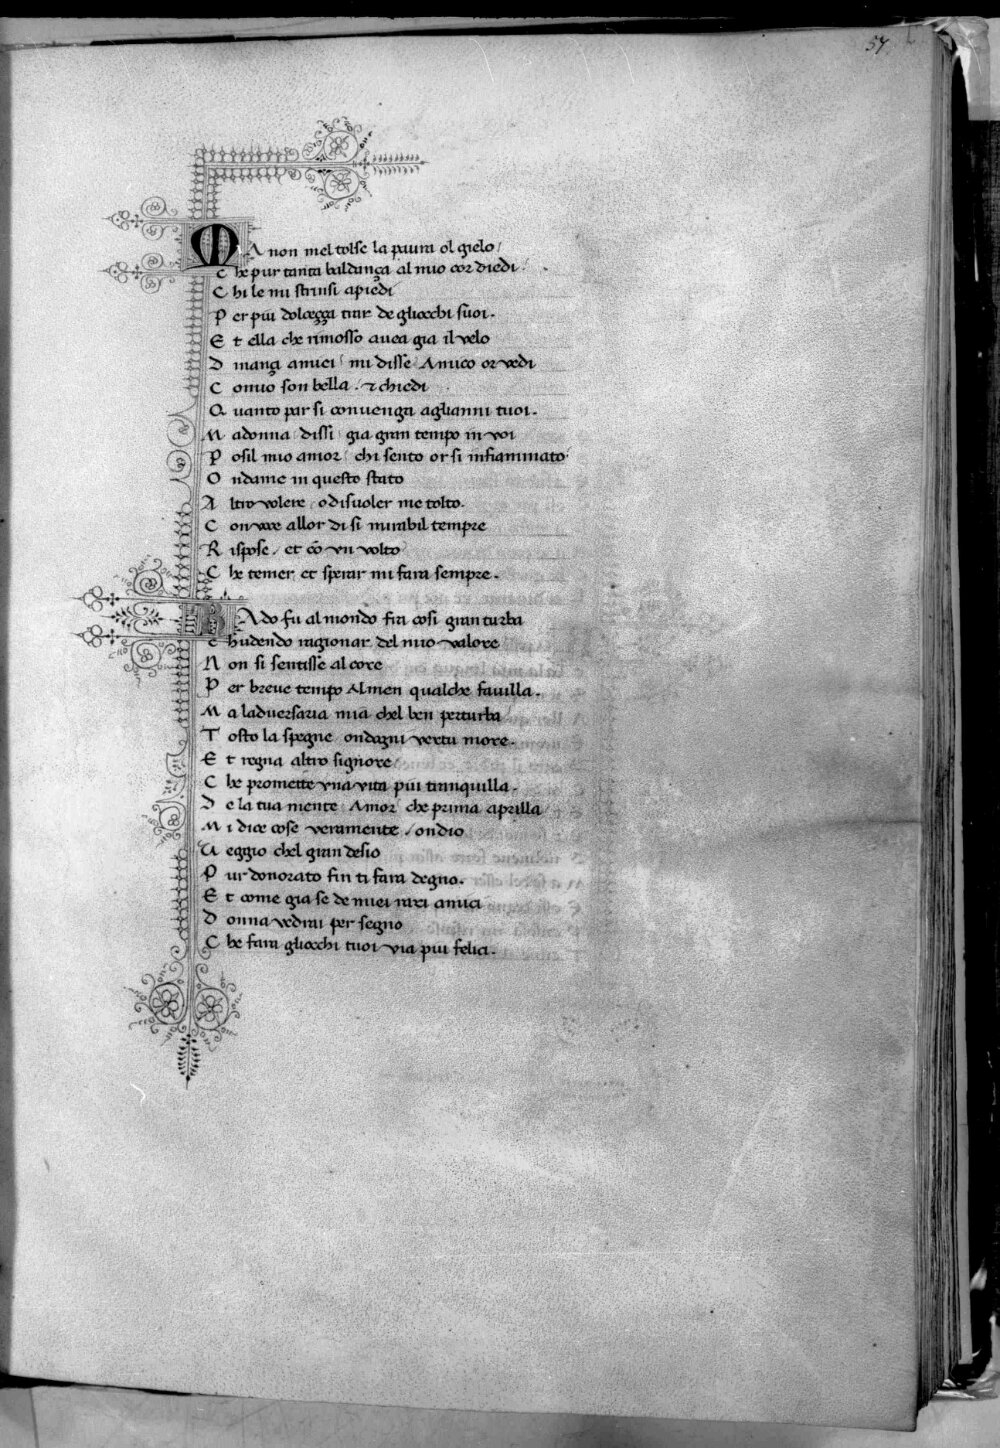 57
MA non mel tolse la paura ol gielo/
C he pur tanta baldança al mio cor diedi
C hi le mi strinsi apiedi
P er piu dolceçça trar de gliocchi suoi.
E t ella che rimosso auea gia il velo
D inança amiei/ mi disse Amico or vedi
C omio son bella. & chiedi
Q uanto par si conuenga aglianni tuoi.
M adonna dissi gia gran tempo in voi
P osil mio amor/ chi sento or si infiammato
O ndame in questo stato
A ltro volere o disuoler me tolto.
C on voce allor di si mirabil tempre
R ispose/ et cō vn volto
C he temer et sperar mi fara sempre.
RAdo fu al mondo fra cosi gran turba
C hudendo ragionar del mio valore
N on si sentisse al core
P er breue tempo almen qualche fauilla.
M a laduersaria mia chel ben perturba
T osto la spegne ondogni vertu more.
E t regna altro signore
C he promette vna vita piu tranquilla.
D e la tua mente Amor che prima aprilla
M i dice cose veramente/ ondio
V eggio chel gran desio
P ur donorato fin ti fara degno.
E t come gia se de miei rari amici
D onna vedrai per segno
C he fara gliocchi tuoi via piu felici.